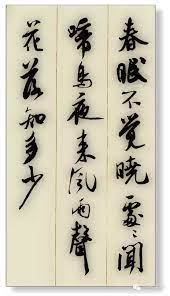 春眠不觉曉處々闻
啼鸟夜来风雨聲
花落知多少